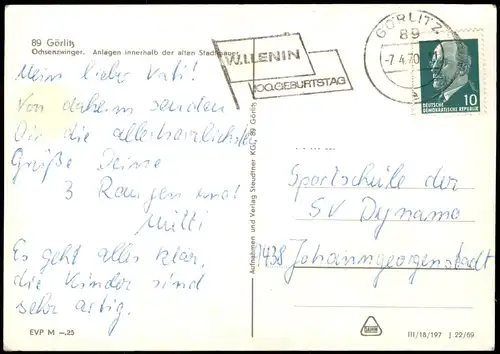 89 Görlitz
Ochsenzwinger. Anlagen innerhalb der alten Stadtmauer
Mein lieber Vati!
Von daheim senden
Dir die allerherzlichsten
Grüße Deine
3 Rangen und
Mutti
Es geht alles klar,
die Kinder sind
sehr artig.
EVP M –.25
Aufnahmen und Verlag Steudtner KG, 89 Görlitz
W.I. LENIN
100. GEBURTSTAG
GÖRLITZ
89
-7.4.70
DEUTSCHE
DEMOKRATISCHE REPUBLIK
10
Sportschule der
SV Dynamo
1438 Johanngeorgenstadt
DAHN
III/18/197 J 22/69